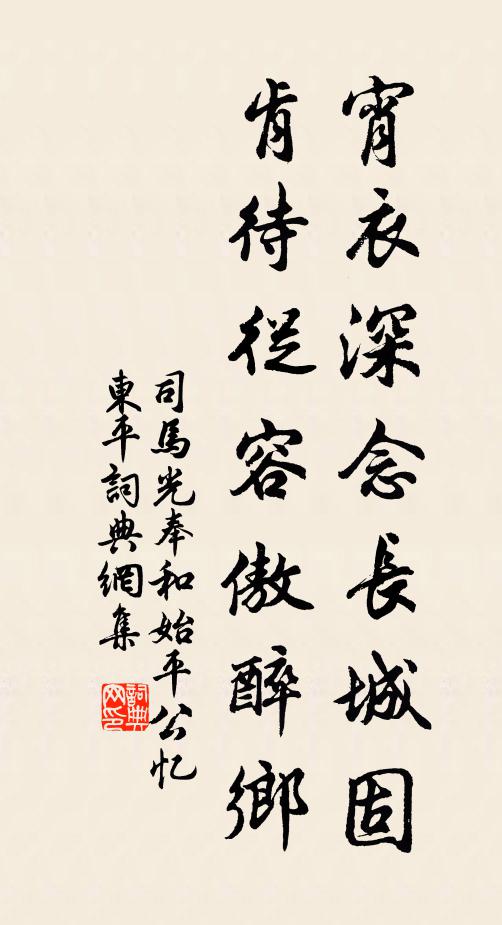 宵衣深念長城固
肯待從容傲醉鄉
司馬光奉和始平公忆
東平詞典網集
詞典网印